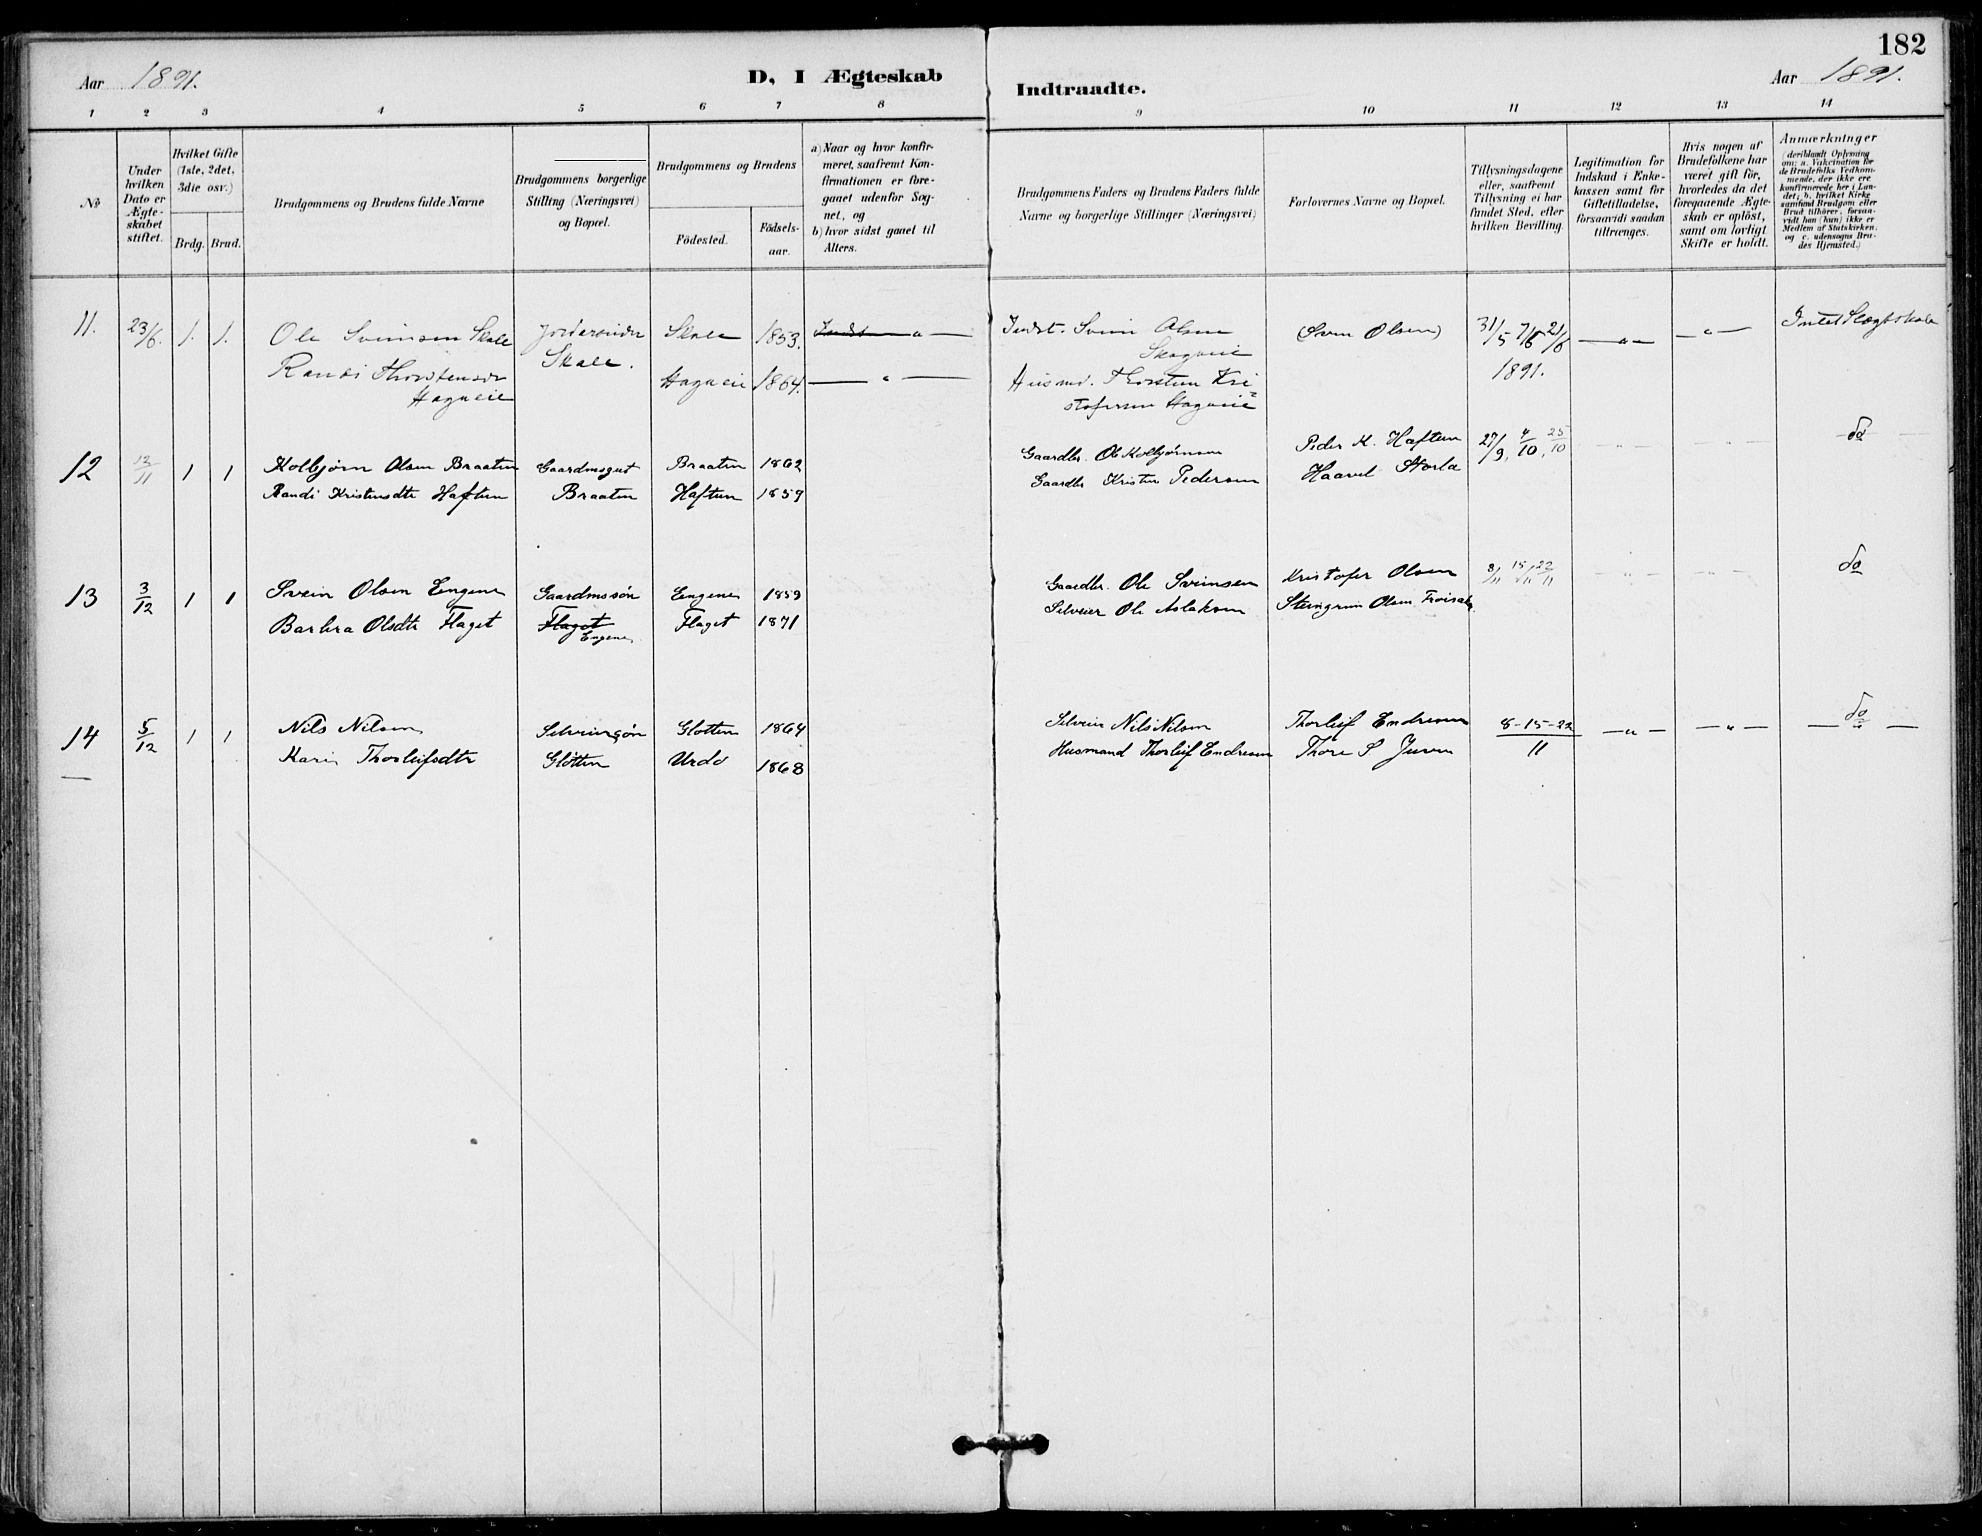 182
Aar 1891.
D, I Ægteskab
Indtraadte.
Aar 1891.
1 2 3 4 5 6 7 8 9 10 11 12 13 14
No
Under hvilken Dato er Ægte-skabet stiftet.
Hvilket Gifte (1ste, 2det, 3die osv.)
Brdg. Brud.
Brudgommens og Brudens fulde Navne
Brudgommens borgerlige Stilling (Næringsvei) og Bopæl.
Brudgommens og Brudens
Födested.
Födsels-aar.
a) Naar og hvor konfir-meret, saafremt Kon-firmationen er fore-gaaet udenfor Sog-net, og
b) hvor sidst gaaet til Alters.
Brudgommens Faders og Brudens Faders fulde Navne og borgerlige Stillinger (Næringsvei)
Forlovernes Navne og Bopæl.
Tillysningsdagene eller, saafremt Tillysning ei har fundet Sted, efter hvilken Bevilling.
Legitimation for Indskud i Enke-kassen samt for Giftetilladelse, forsaavidt saadan tiltrænges.
Hvis nogen af Brudefolkene har været gift för, hvorledes da det foregaaende Ægte-skab er oplöst, samt om lovligt Skifte er holdt.
Anmærkninger
(deriblandt Oplysning om: a. Vakcination for de Brudefolks Vedkom-mende, der ikke ere konfirmerede her i Lan-det; b. hvilket Kirke samfund Brudgom eller Brud tilhörer, forsaa-vidt han (hun) ikke er Medlem af Statskirken, og c. udensogns Bru-des Hjemsted.)
11. 23/6. 1. 1. Ole Svensen Skale Skale 1853. Indst " Indst. Svein Olsen Sven Olsen 31/5 7/6 21/6 " " Intet Slægtskab
Skale. Skogveie
Randi Thorstensdr Hagaeie 1864. " Husmd. Thorsten Kri= 1891.
Hagaeie stofersen Hagaeie
12 12/11 1 1 Kolbjørn Olsen Braaten Gaardmsgut Braaten 1862 Gaardbr. Ole Kolbjørnsen Peder K. Haftun 27/9, 4/10, 25/10 " " do
Randi Kristensdtr Haftun Braaten Haftun 1859 Gaardbr Kristen Pedersen Haavel Storla
13 3/12 1 1 Svein Olsen Engene Gaardmssøn Engene 1859 Gaardbr. Ole Sveinsen Kristofer Olsen 8/11 15/11 22/11 " " do
Barbra Olsdtr Flaget Flaget Flaget 1871 Selveier Ole Aslaksen Steingrim Olsen
Engene
14 5/12 1 1 Nils Nilsen Selveiersøn Gløtten 1864 Selveier Nils Nilsen Thorleif Endresen 8-15-22 " " do
Kari Thorleifsdtr Gløtten Urdo 1868 Husmand Thorleif Endresen Thore S Juven 11